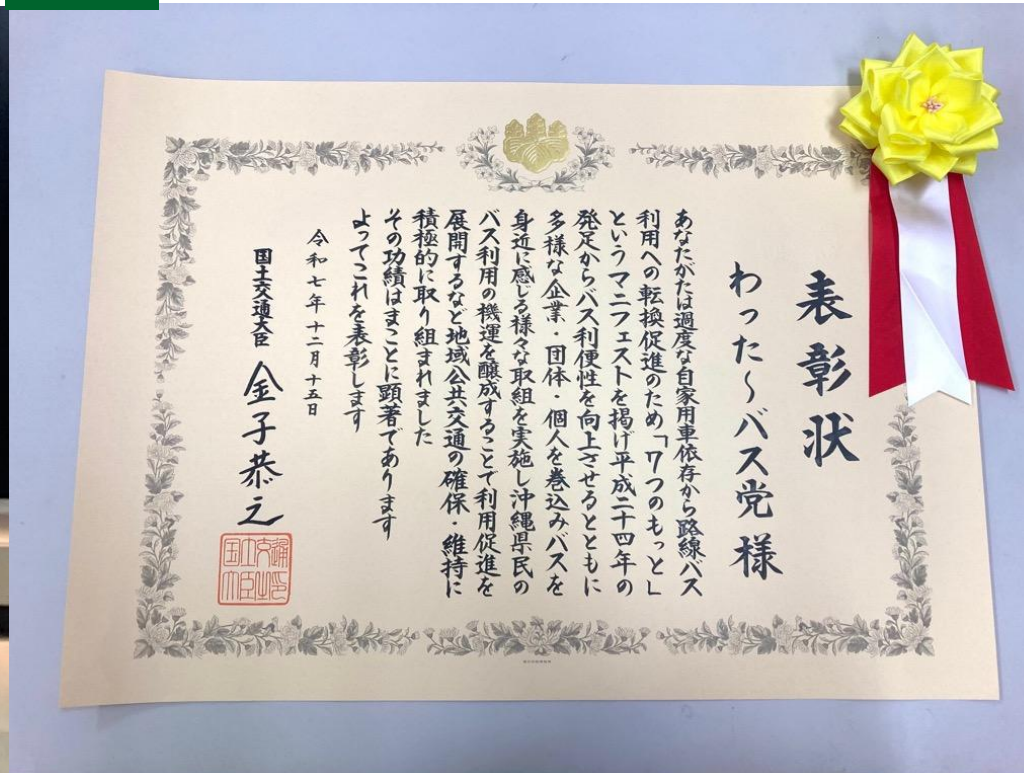 表彰状
わった～バス党様
あなたがたは過度な自家用車依存から路線バス
利用への転換促進のため「7つのもっと」
というマニフェストを掲げ平成二十四年の
発足からバス利便性を向上させるとともに
多様な企業・団体・個人を巻込みバスを
身近に感じる様々な取組を実施し沖縄県民の
バス利用の機運を醸成することで利用促進を
展開するなど地域公共交通の確保・維持に
積極的に取り組まれました
その功績はまことに顕著であります
よってこれを表彰します
令和七年十二月十五日
国土交通大臣 金子恭之